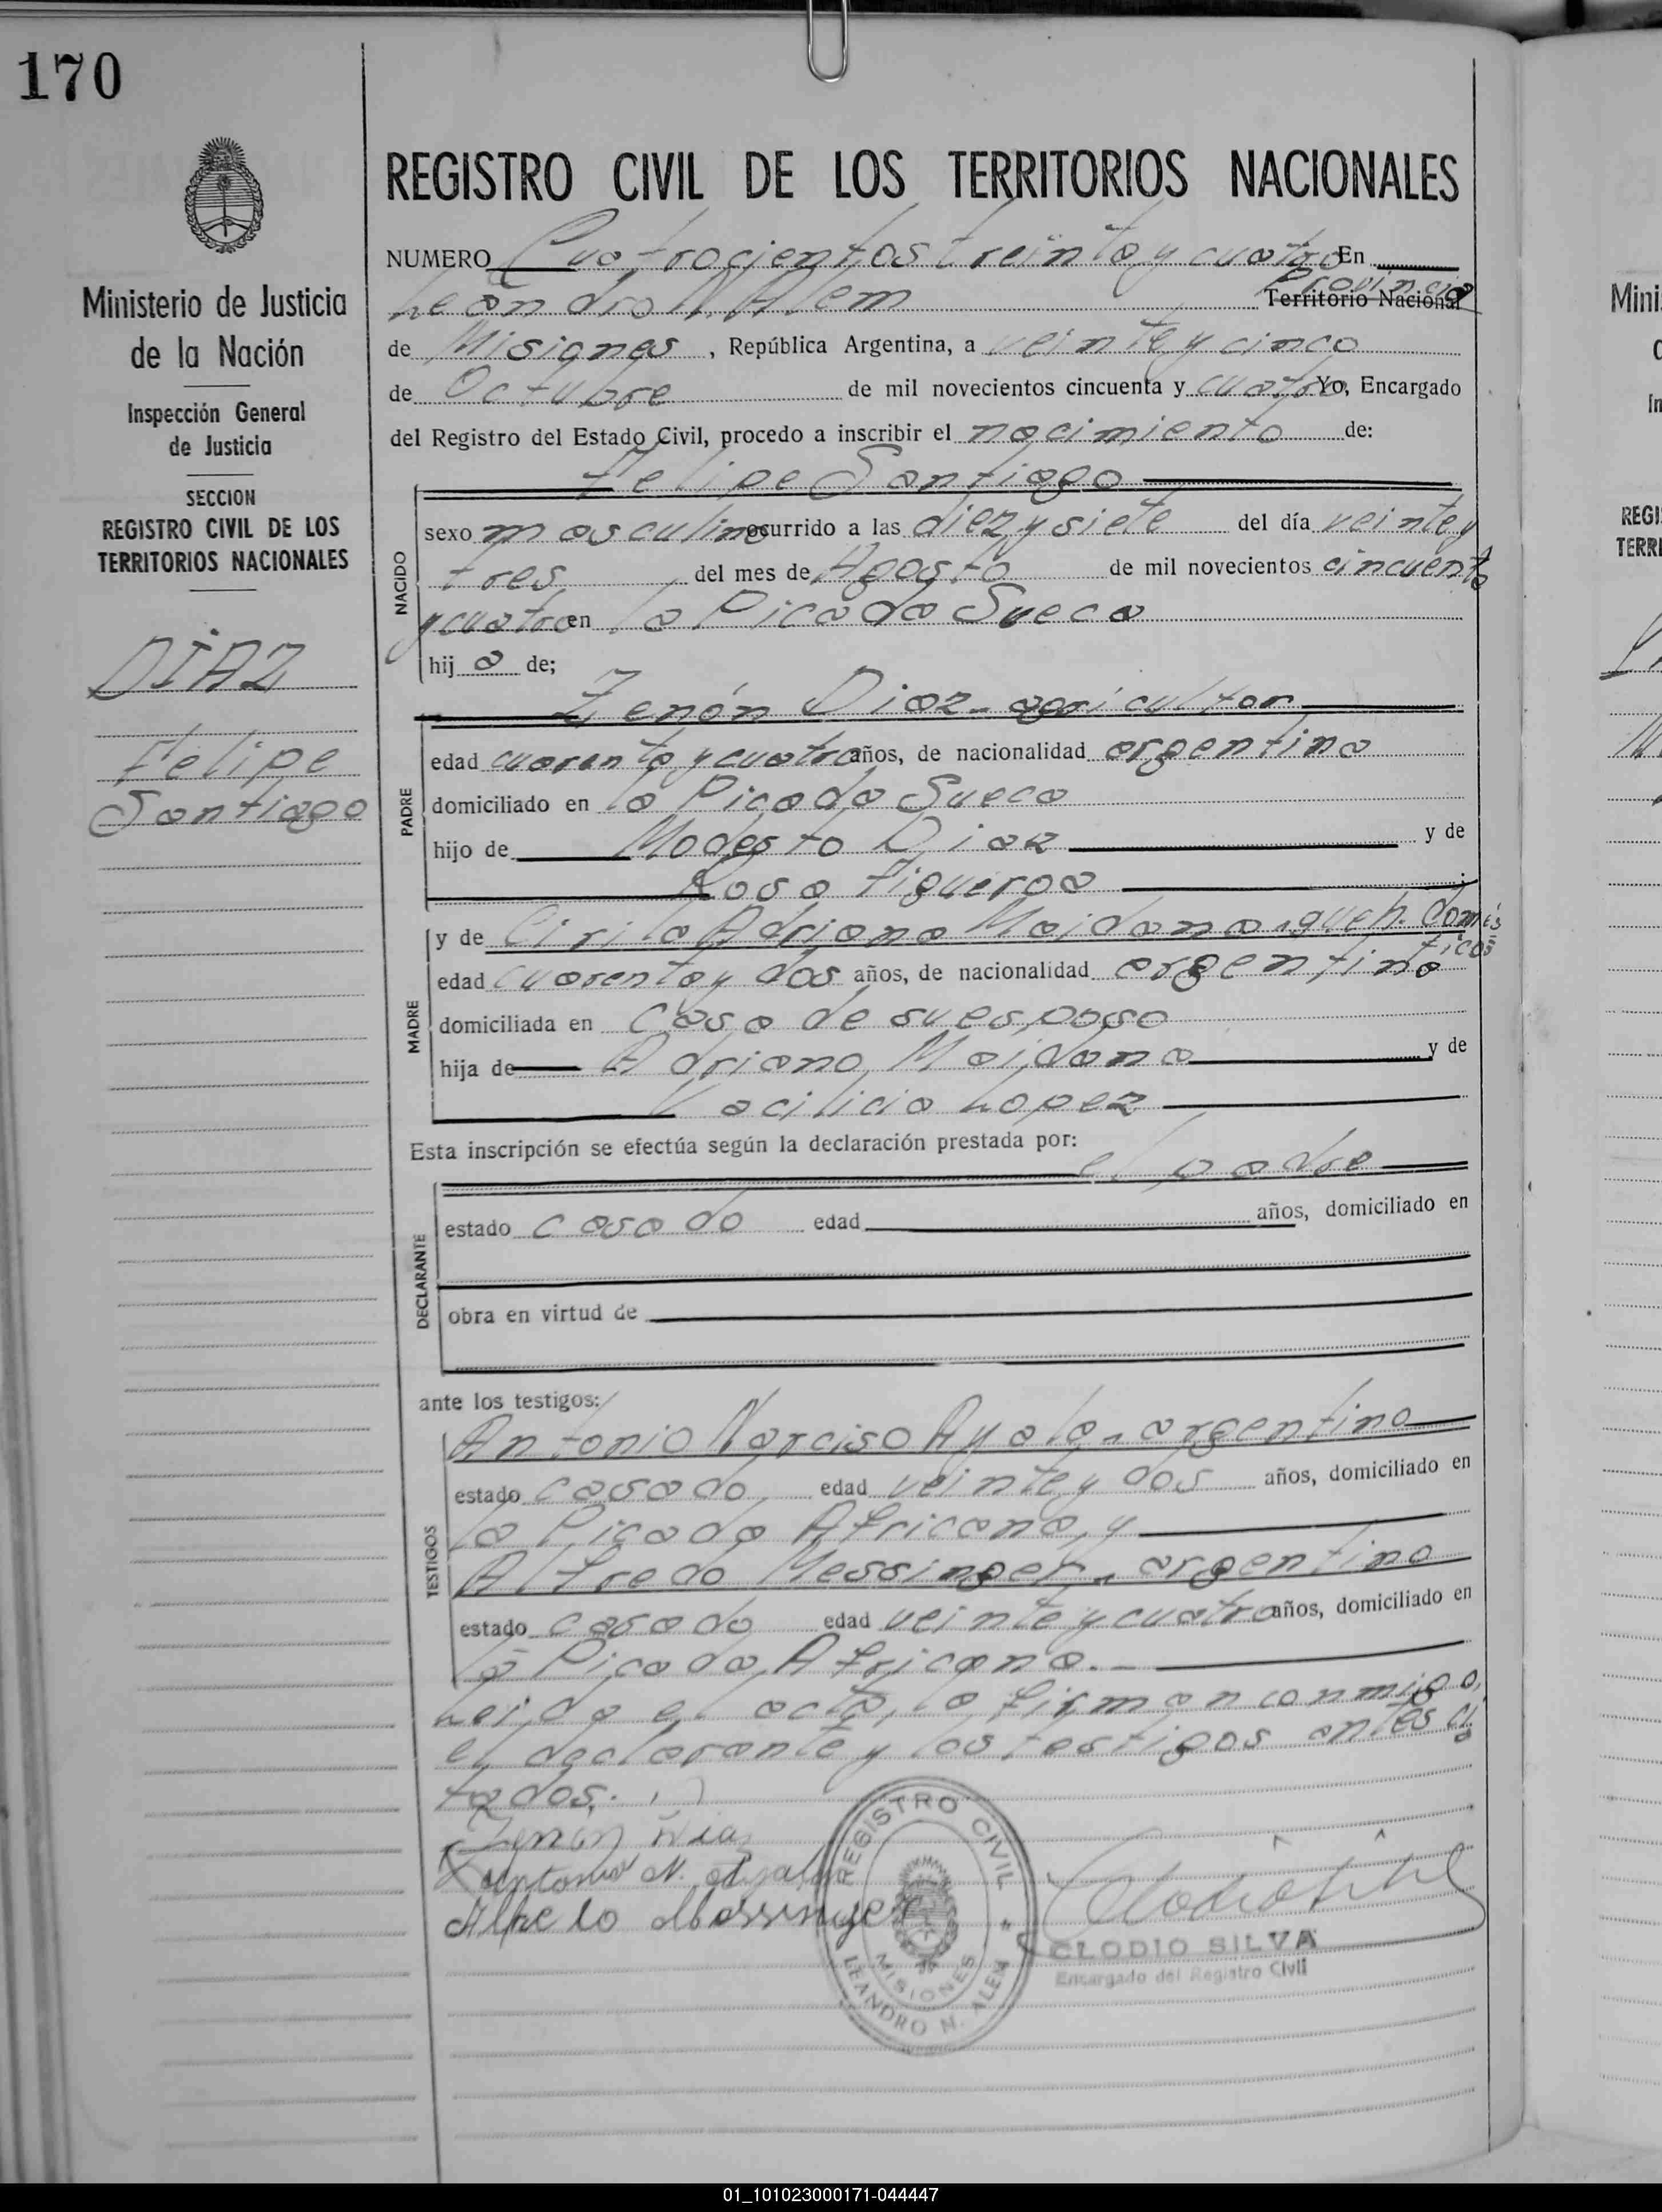 170
Ministerio de Justicia
de la Nación
Inspección General
de Justicia
SECCION
REGISTRO CIVIL DE LOS
TERRITORIOS NACIONALES
DIAZ
Felipe
Santiago
REGISTRO CIVIL DE LOS TERRITORIOS NACIONALES
NUMERO Cuatrocientos treinta y cuatro En
Leandro N. Alem Provincia Territorio Nacional
de Misiones, República Argentina, a veinte y cinco
de Octubre de mil novecientos cincuenta y cuatro Yo, Encargado
del Registro del Estado Civil, procedo a inscribir el nacimiento de:
Felipe Santiago
NACIDO
sexo masculino ocurrido a las diez y siete del día veinte y
tres del mes de Agosto de mil novecientos cincuenta
y cuatro en la Picada Sueca
hij o de;
Zenón Diaz - agricultor
PADRE
edad cuarenta y cuatro años, de nacionalidad argentina
domiciliado en la Picada Sueca
hijo de Modesto Diaz y de
Rosa Figueroa
MADRE
y de Cirila Adriana Maidana, queh. domés
ticos
edad cuarenta y dos años, de nacionalidad argentina
domiciliada en casa de su esposo
hija de Adriano Maidana y de
Vacilicia Lopez
Esta inscripción se efectúa según la declaración prestada por:
el padre
DECLARANTE
estado casado edad años, domiciliado en
obra en virtud de
ante los testigos:
TESTIGOS
Antonio Narciso Ayala, argentino
estado casado edad veinte y dos años, domiciliado en
la Picada Africana, y
Alfredo Messinger, argentino
estado casado edad veinte y cuatro años, domiciliado en
la Picada Africana.
Leida el acta, la firman conmigo,
el declarante y los testigos antes ci
tados.
Zenon Diaz
Antonio N. Ayala
Alfredo Messinger
REGISTRO CIVIL
MISIONES
LEANDRO N. ALEM
CLODIO SILVA
Encargado del Registro Civil
Mini
REGI
TERRI
01_101023000171-044447